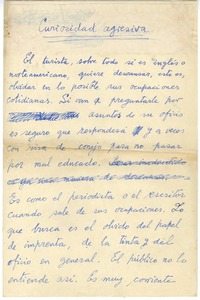 Curiosidad agresiva
El turista, sobre todo si es inglés o
norteamericano, quiere descansar, esto es,
olvidar en lo posible sus ocupaciones
cotidianas. Si van a preguntarle por
asuntos de su oficio
es seguro que responderá y a veces
con risa de conejo para no pasar
por mal educado.
Es como el periodista o el escritor
cuando sale de sus ocupaciones. Lo
que busca es el olvido del papel
de imprenta, de la tinta y del
oficio en general. El público no lo
entiende así. Es muy corriente